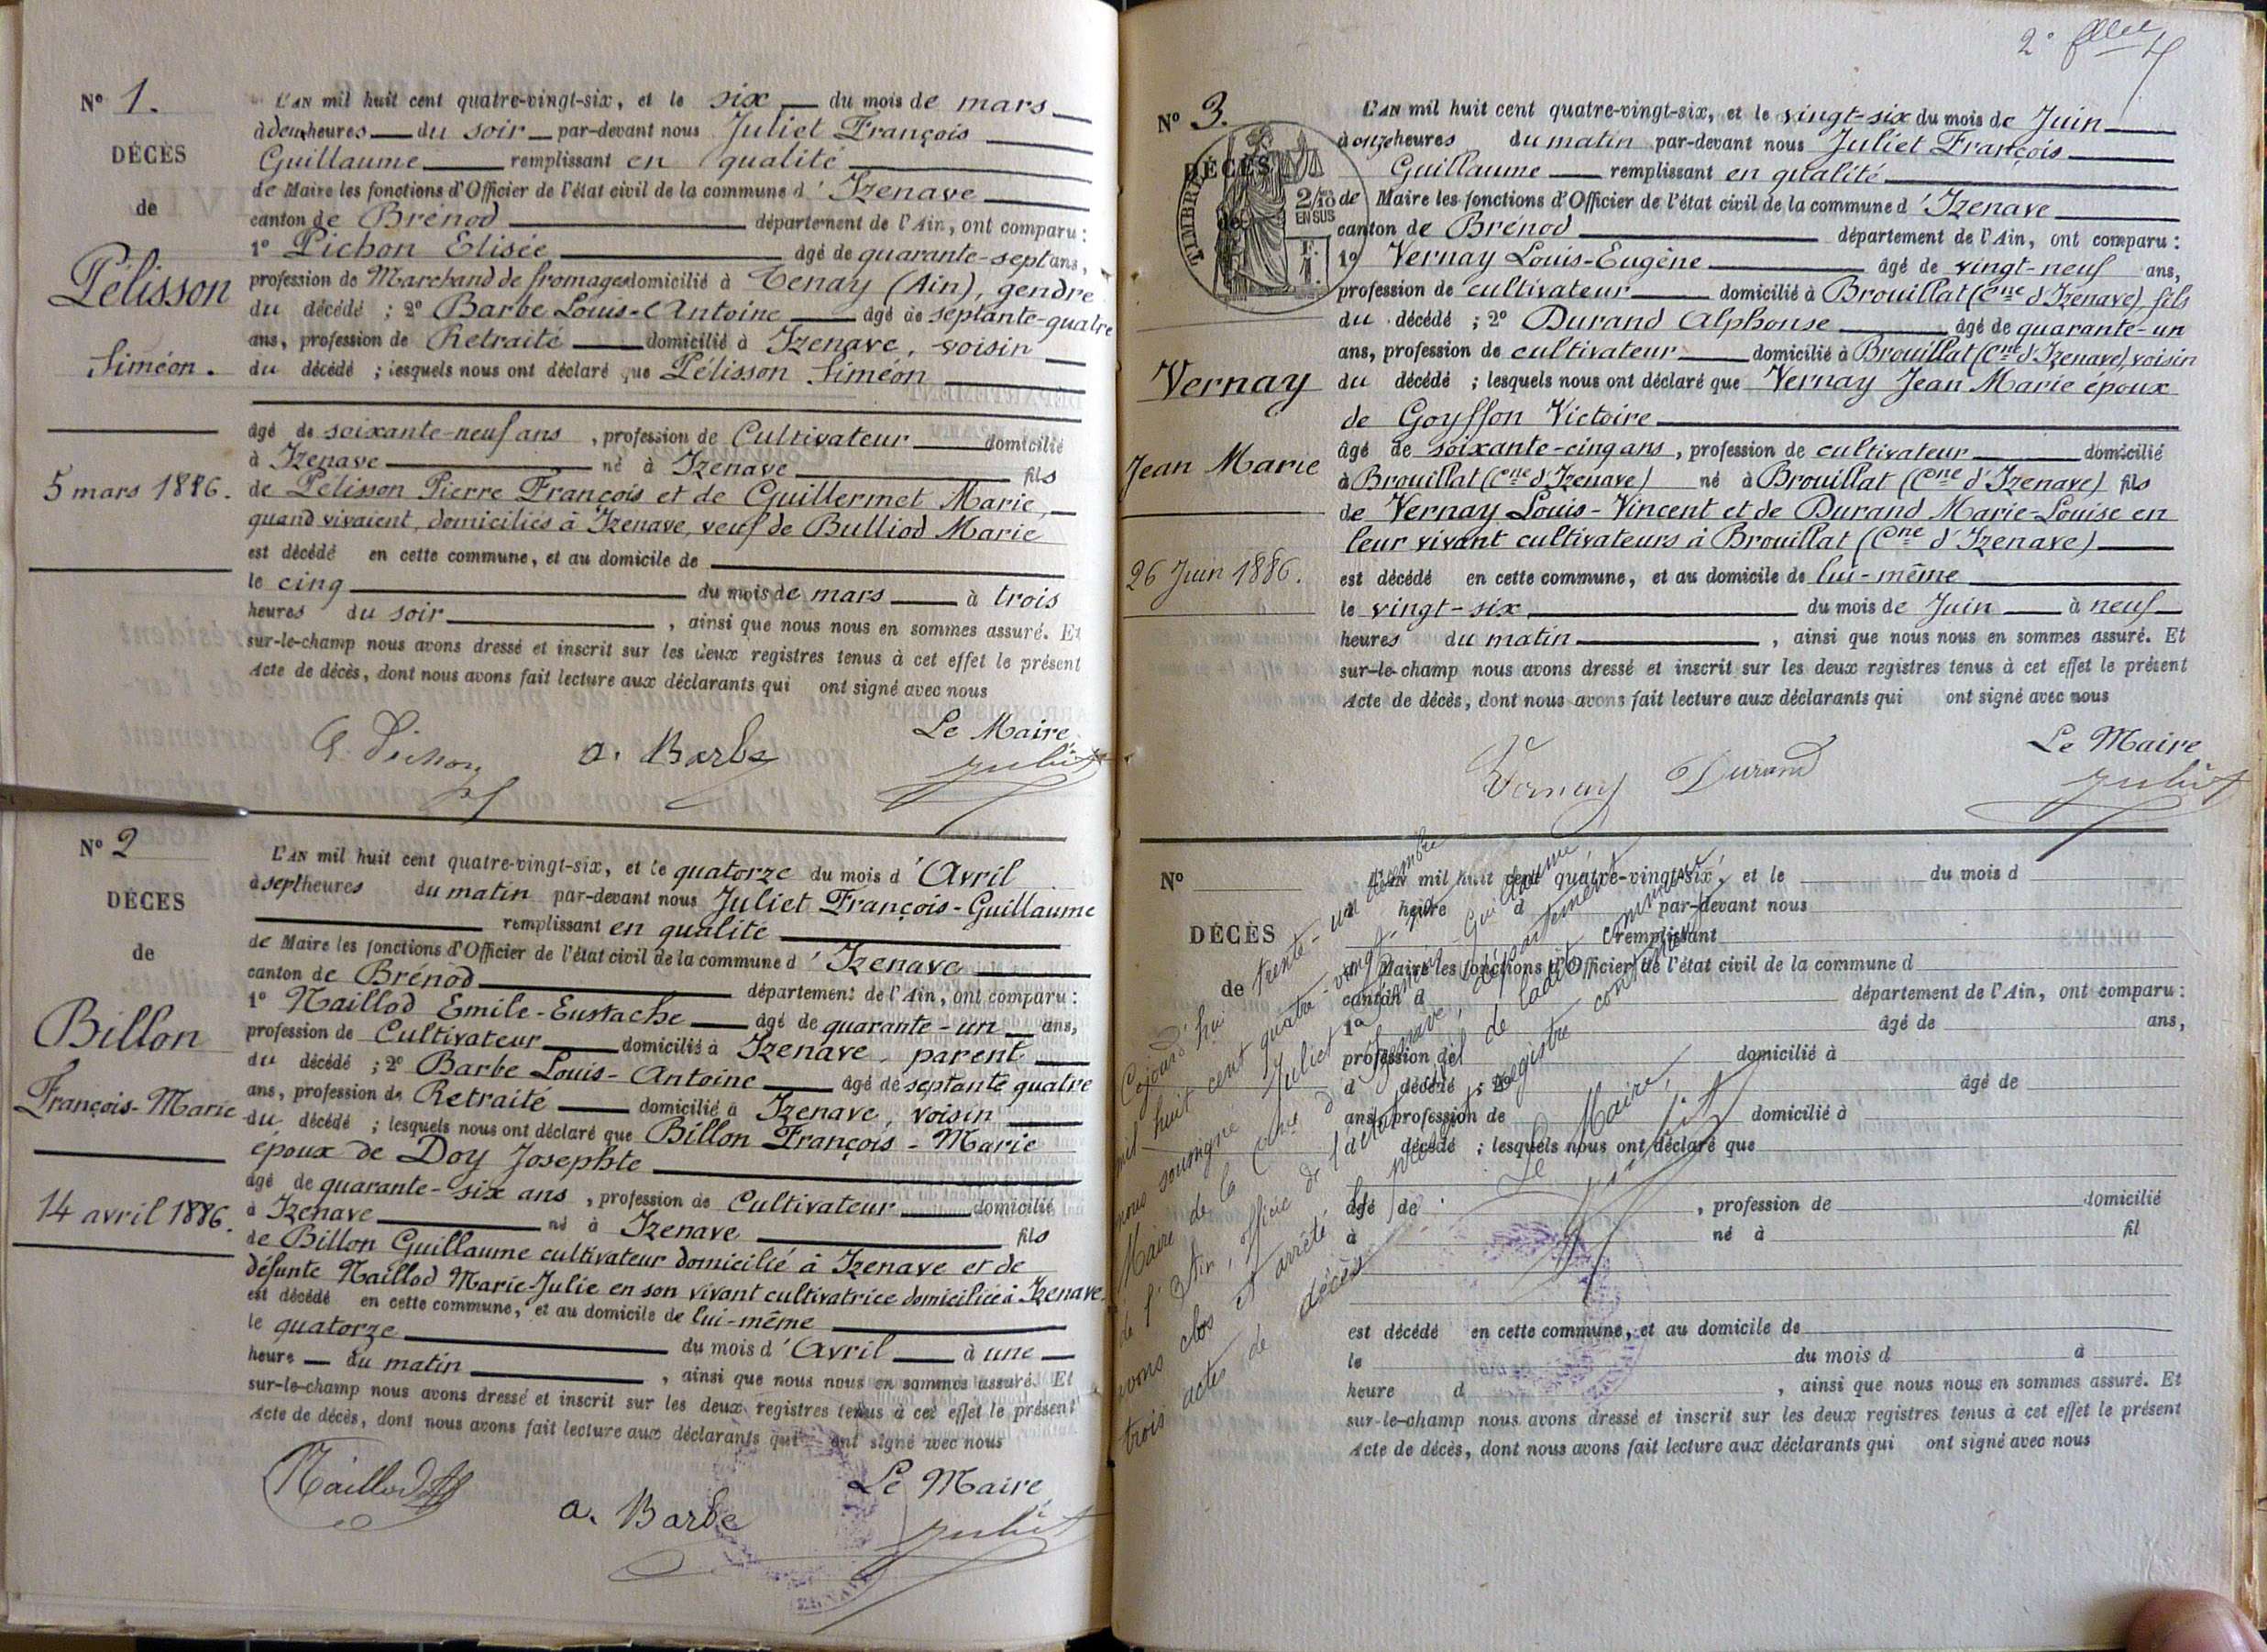 Nº 1.
DÉCÈS
de
Pélisson
Siméon.
5 mars 1886.
L'AN mil huit cent quatre-vingt-six, et le six du mois de mars
à deux heures du soir par-devant nous Juliet François
Guillaume remplissant en qualité
de Maire les fonctions d'Officier de l'état civil de la commune d'Izenave
canton de Brénod département de l'Ain, ont comparu :
1º Pichon Elisée âgé de quarante-sept ans,
profession de Marchand de fromages domicilié à Tenay (Ain), gendre
du décédé ; 2º Barbe Louis-Antoine âgé de septante-quatre
ans, profession de Retraité domicilié à Izenave, voisin
du décédé ; lesquels nous ont déclaré que Pélisson Siméon
âgé de soixante-neuf ans, profession de Cultivateur domicilié
à Izenave né à Izenave fils
de Pélisson Pierre François et de Guillermet Marie,
quand vivaient, domiciliés à Izenave, veuf de Bulliod Marie
est décédé en cette commune, et au domicile de
le cinq du mois de mars à trois
heures du soir, ainsi que nous nous en sommes assuré. Et
sur-le-champ nous avons dressé et inscrit sur les deux registres tenus à cet effet le présent
Acte de décès, dont nous avons fait lecture aux déclarants qui ont signé avec nous
Le Maire
E. Pichon a. Barbe Juliet
Nº 2
DÉCÈS
de
Billon
François-Marie
14 avril 1886.
L'AN mil huit cent quatre-vingt-six, et le quatorze du mois d'Avril
à sept heures du matin par-devant nous Juliet François-Guillaume
remplissant en qualité
de Maire les fonctions d'Officier de l'état civil de la commune d'Izenave
canton de Brénod département de l'Ain, ont comparu :
1º Naillod Emile-Eustache âgé de quarante-un ans,
profession de Cultivateur domicilié à Izenave, parent
du décédé ; 2º Barbe Louis-Antoine âgé de septante quatre
ans, profession de Retraité domicilié à Izenave, voisin
du décédé ; lesquels nous ont déclaré que Billon François-Marie
époux de Doy Josephte
âgé de quarante-six ans, profession de Cultivateur domicilié
à Izenave né à Izenave fils
de Billon Guillaume cultivateur domicilié à Izenave et de
défunte Naillod Marie-Julie en son vivant cultivatrice domiciliée à Izenave.
est décédé en cette commune, et au domicile de lui-même
le quatorze du mois d'Avril à une
heure du matin, ainsi que nous nous en sommes assuré. Et
sur-le-champ nous avons dressé et inscrit sur les deux registres tenus à cet effet le présent
Acte de décès, dont nous avons fait lecture aux déclarants qui ont signé avec nous
Le Maire
Naillod a. Barbe Juliet
2º
Nº 3.
DÉCÈS
de
TIMBRE
2/10 EN SUS
Vernay
Jean Marie
26 Juin 1886.
L'AN mil huit cent quatre-vingt-six, et le vingt-six du mois de Juin
à onze heures du matin par-devant nous Juliet François
Guillaume remplissant en qualité
de Maire les fonctions d'Officier de l'état civil de la commune d'Izenave
canton de Brénod département de l'Ain, ont comparu :
1º Vernay Louis-Eugène âgé de vingt-neuf ans,
profession de cultivateur domicilié à Brouillat (Cne d'Izenave) fils
du décédé ; 2º Durand Alphonse âgé de quarante-un
ans, profession de cultivateur domicilié à Brouillat (Cne d'Izenave), voisin
du décédé ; lesquels nous ont déclaré que Vernay Jean Marie époux
de Goyffon Victoire
âgé de soixante-cinq ans, profession de cultivateur domicilié
à Brouillat (Cne d'Izenave) né à Brouillat (Cne d'Izenave) fils
de Vernay Louis-Vincent et de Durand Marie-Louise en
leur vivant cultivateurs à Brouillat (Cne d'Izenave)
est décédé en cette commune, et au domicile de lui-même
le vingt-six du mois de Juin à neuf
heures du matin, ainsi que nous nous en sommes assuré. Et
sur-le-champ nous avons dressé et inscrit sur les deux registres tenus à cet effet le présent
Acte de décès, dont nous avons fait lecture aux déclarants qui ont signé avec nous
Le Maire
Vernay Durand Juliet
Nº
DÉCÈS
de
L'AN mil huit cent quatre-vingt-six, et le du mois d
à heure d par-devant nous
remplissant
Maire les fonctions d'Officier de l'état civil de la commune d
canton d département de l'Ain, ont comparu :
1º âgé de ans,
profession de domicilié à
d décédé ; 2º âgé de
ans, profession de domicilié à
décédé ; lesquels nous ont déclaré que
âgé de , profession de domicilié
à né à fil
est décédé en cette commune, et au domicile de
le du mois d à
heure d , ainsi que nous nous en sommes assuré. Et
sur-le-champ nous avons dressé et inscrit sur les deux registres tenus à cet effet le présent
Acte de décès, dont nous avons fait lecture aux déclarants qui ont signé avec nous
Cejourd'hui trente-un décembre
mil huit cent quatre-vingt-six
nous soussigné Juliet François-Guillaume,
Maire de la Cne d'Izenave, département
de l'Ain, officier de l'état civil de ladite commune
avons clos et arrêté le présent registre contenant
trois actes de décès
Le Maire,
Juliet